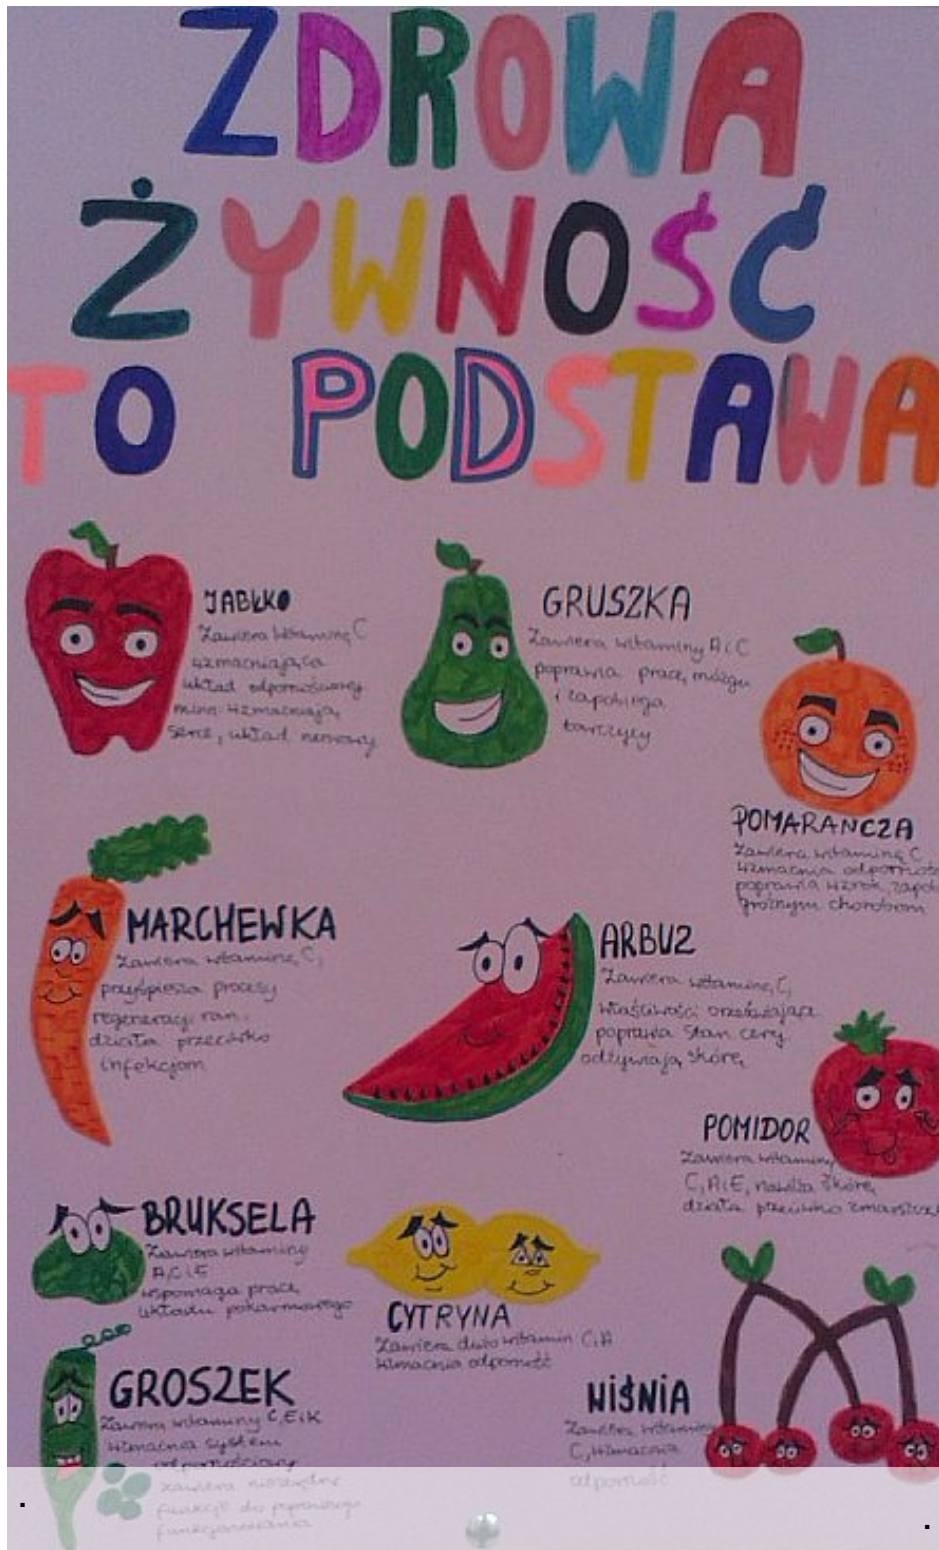 ZDROWA
ŻYWNOŚĆ
TO PODSTAWA
JABŁKO
Zawiera witaminę C
wzmacniająca
układ odpornościowy
m.in. wzmacniają
serce, układ nerwowy
GRUSZKA
Zawiera witaminy A i C
poprawia pracę mózgu
i zapobiega
tarczycy
POMARAŃCZA
Zawiera witaminę C
wzmacnia
poprawia wzrok,
groźnym chorobom
MARCHEWKA
Zawiera witaminę C,
przyśpiesza procesy
regeneracji ran.
działa przeciwko
infekcjom
ARBUZ
Zawiera witaminę C,
właściwości orzeźwiające
poprawia stan cery
odżywiają skórę
POMIDOR
Zawiera witaminy
C, A i E, nawilża skórę,
działa przeciwko
BRUKSELA
Zawiera witaminy
A, C i E
wspomaga pracę
układu pokarmowego
CYTRYNA
Zawiera dużo witamin C i A
wzmacnia odporność
GROSZEK
Zawiera witaminy C, E i K
wzmacnia system
odpornościowy
zawiera niezbędne
funkcje do poprawnego
funkcjonowania
WIŚNIA
Zawiera witaminę
C, wzmacnia
odporność